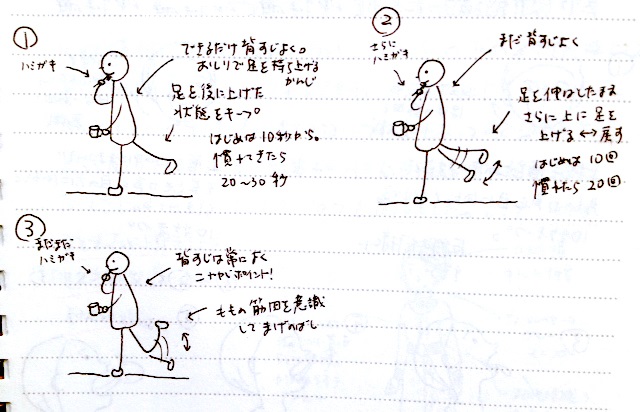 ①
ハミガキ
できるだけ背すじよく。
おしりで足を持ち上げる
かんじ
足を後に上げた
状態をキープ。
はじめは10秒から。
慣れてきたら
20〜30秒
②
さらに
ハミガキ
まだ背すじよく
足を伸ばしたまま
さらに上に足を
上げる↔戻す
はじめは10回
慣れたら20回
③
まだまだ
ハミガキ
背すじは常によく
こやしポイント!
ももの筋肉を意識
してまげのばし